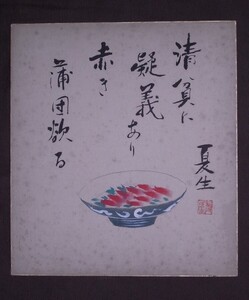 清貧に
疑義あり
赤き
蒲団欲る
夏生